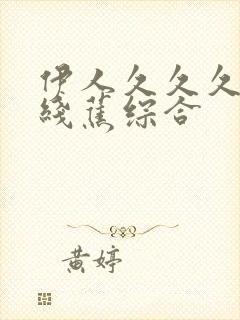 伊人久久久
綫蕉综合
黄婷